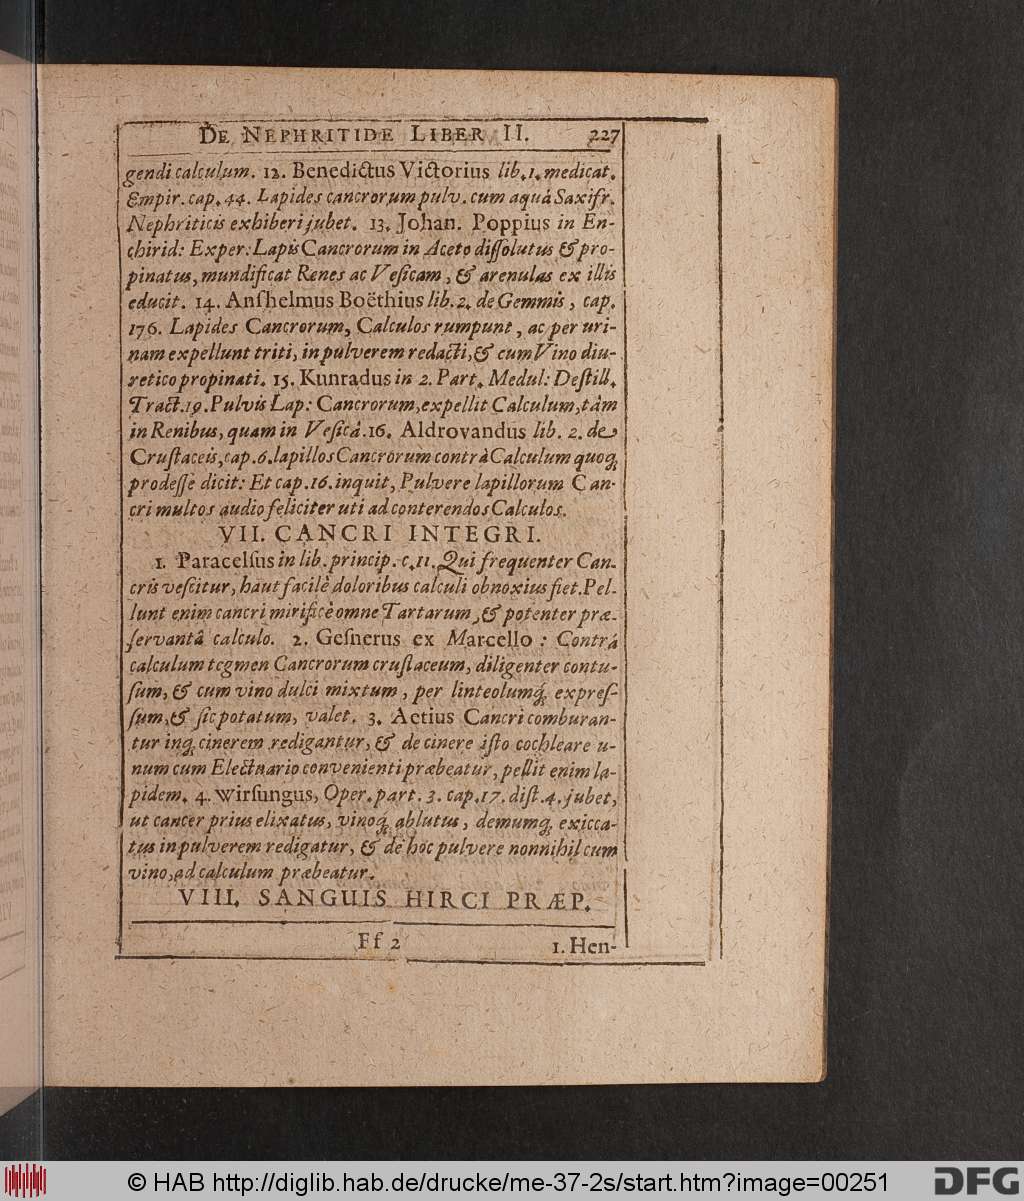 DE NEPHRITIDE LIBER II. 227
gendi calculum. 12. Benedictus Victorius lib.1. medicat.
Empir. cap. 44. Lapides cancrorum pulv. cum aquâ Saxifr.
Nephriticis exhiberi jubet. 13. Johan. Poppius in En-
chirid: Exper: Lapis Cancrorum in Aceto diſſolutus & pro-
pinatus, mundificat Renes ac Veſicam, & arenulas ex illis
educit. 14. Anſhelmus Boëthius lib. 2. de Gemmis, cap.
176. Lapides Cancrorum, Calculos rumpunt, ac per uri-
nam expellunt triti, in pulverem redacti, & cum Vino diu-
retico propinati. 15. Kunradus in 2. Part. Medul: Deſtill.
Tract. 19. Pulvis Lap: Cancrorum, expellit Calculum, tàm
in Renibus, quam in Veſicâ. 16. Aldrovandus lib. 2. de
Cruſtaceis, cap. 6. lapillos Cancrorum contrà Calculum quoq;
prodeſſe dicit: Et cap. 16. inquit, Pulvere lapillorum Can-
cri multos audio feliciter uti ad conterendos Calculos.
VII. CANCRI INTEGRI.
1. Paracelſus in lib. princip. c. 11. Qui frequenter Can-
cris veſcitur, haut facilè doloribus calculi obnoxius fiet. Pel-
lunt enim cancri mirificè omne Tartarum, & potenter præ-
ſervant â calculo. 2. Geſnerus ex Marcello: Contrá
calculum tegmen Cancrorum cruſtaceum, diligenter contu-
ſum, & cum vino dulci mixtum, per linteolumq́; expreſ-
ſum, & ſic potatum, valet. 3. Aetius Cancri comburan-
tur inq; cinerem redigantur, & de cinere iſto cochleare u-
num cum Electuario convenienti præbeatur, pellit enim la-
pidem. 4. Wirſungus, Oper. part. 3. cap. 17. diſt. 4. jubet,
ut cancer prius elixatus, vinoq; ablutus, demumq; exicca-
tus in pulverem redigatur, & de hoc pulvere nonnihil cum
vino, ad calculum præbeatur.
VIII. SANGUIS HIRCI PRÆP.
Ff 2 1. Hen-
© HAB http://diglib.hab.de/drucke/me-37-2s/start.htm?image=00251
DFG